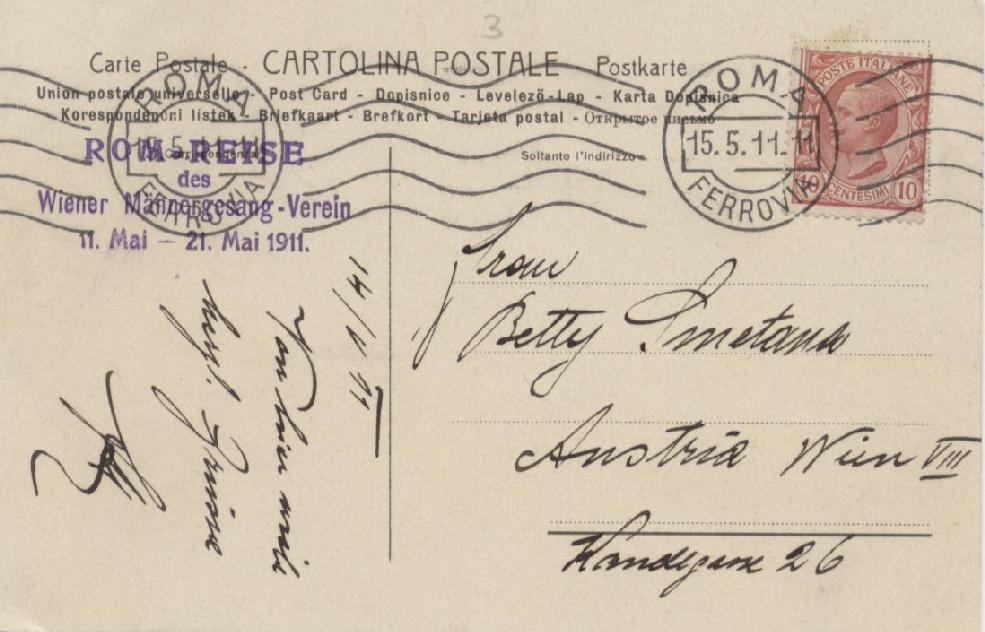 3
Carte Postale - CARTOLINA POSTALE Postkarte
Union postale universelle - Post Card - Dopisnice - Levelező-Lap - Karta Dopisnica
Korespondenční listek - Briefkaart - Brefkort - Tarjeta postal - Открытое письмо
Soltanto l'indirizzo
ROMA
15.5.11.11
FERROVIA
ROM-REISE
des
Wiener Männergesang-Verein
11. Mai — 21. Mai 1911.
ROMA
15.5.11.11
FERROVIA
POSTE ITALIANE
10 CENTESIMI 10
14/V 11
Von hier
herzl. Grüsse
Frau
Betty Smetana
Austria Wien VIII
26